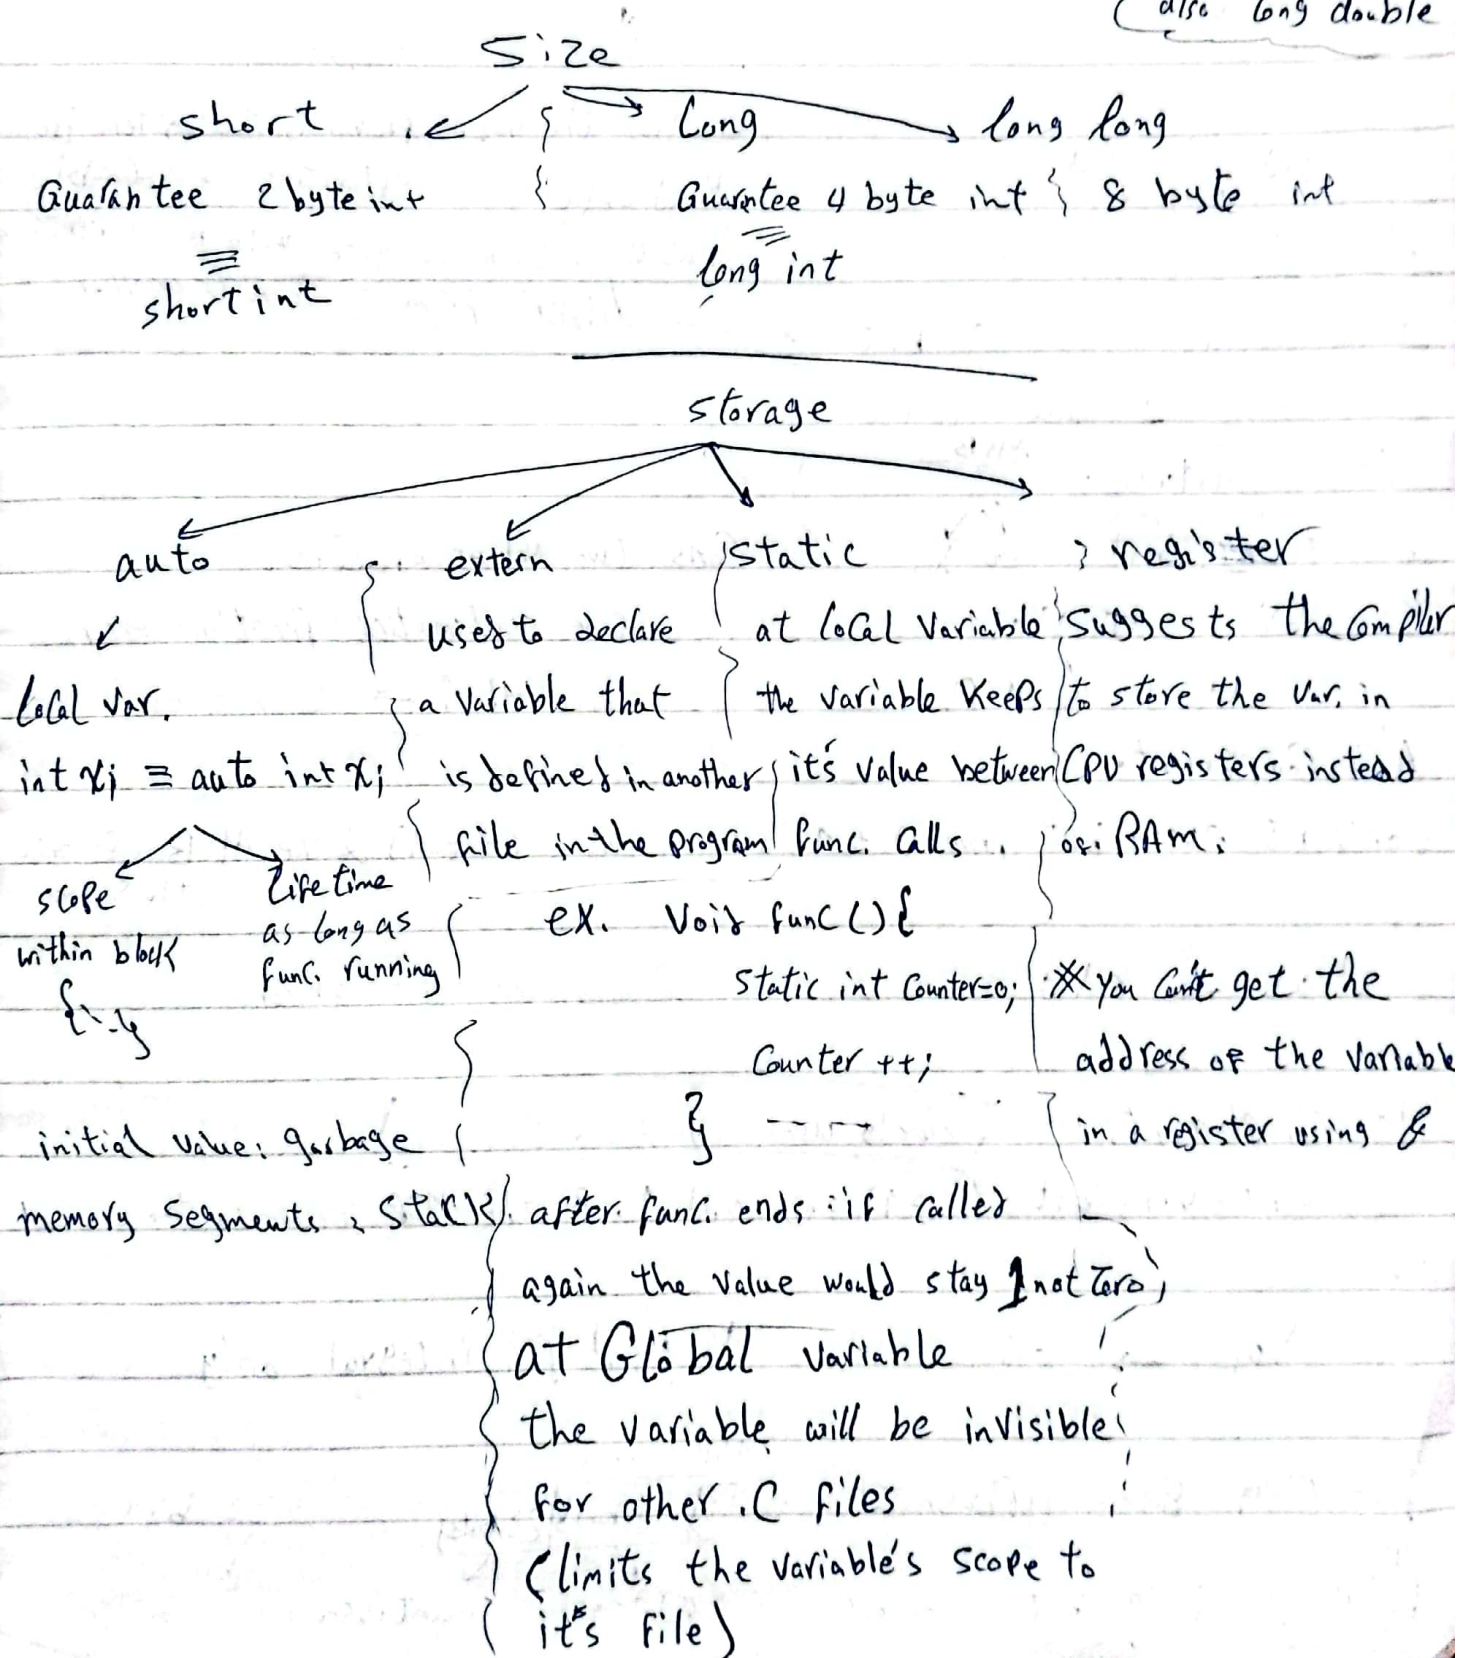 (also long double
Size
short
Long
long long
Guarantee 2 byte int
Guarantee 4 byte int
8 byte int
≡
short int
≡
long int
storage
auto
Local var.
int x; ≡ auto int x;
scope
within block
{--}
Life time
as long as
func. running
initial value: garbage
memory segments: stack
extern
used to declare
a variable that
is defined in another
file in the program
static
at local variable
the variable keeps
it's value between
func. calls.
ex. Void func () {
static int Counter=0;
Counter ++;
} ----
after func. ends : if called
again the value would stay 1 not zero
at Global variable
the variable will be invisible
for other .C files
(limits the variable's scope to
it's file)
register
suggests the compiler
to store the var. in
CPU registers instead
of RAM.
* you can't get the
address of the variable
in a register using &